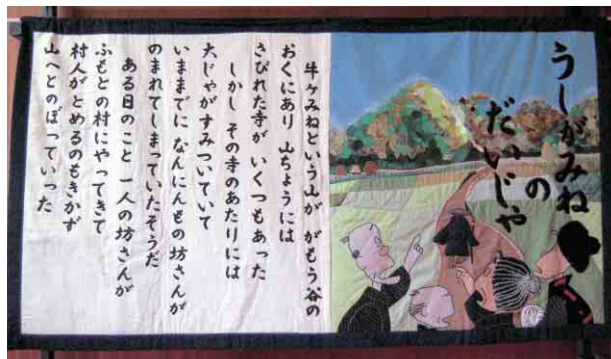 うしがみね
の
だいじゃ
牛ヶみねという山が がもう谷の
おくにあり 山ちょうには
さびれた寺が いくつもあった
しかし その寺のあたりには
大じゃがすみついていて
いままでに なんにんもの坊さんが
のまれてしまっていたそうだ
ある日のこと 一人の坊さんが
ふもとの村にやってきて
村人がとめるのもきかず
山へとのぼっていった